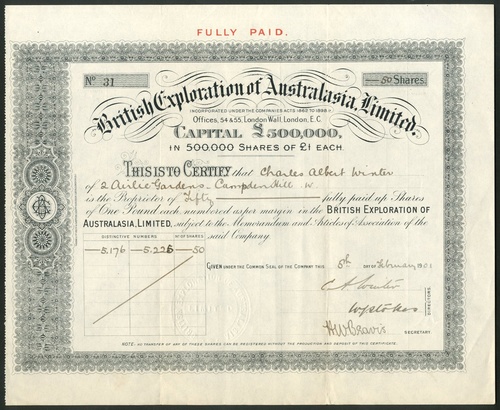 FULLY PAID.
No 31
50 Shares.
British Exploration of Australasia, Limited.
INCORPORATED UNDER THE COMPANIES ACTS 1862 TO 1898
Offices, 54 & 55, London Wall, London, E.C.
CAPITAL £500,000,
IN 500,000 SHARES OF £1 EACH.
THIS IS TO CERTIFY that Charles Albert Winter
of 2 Airlie Gardens Campden Hill W
is the Proprietor of Fifty fully paid up Shares
of One Pound each, numbered as per margin in the BRITISH EXPLORATION OF
AUSTRALASIA, LIMITED, subject to the Memorandum and Articles of Association of the
said Company.
DISTINCTIVE NUMBERS No OF SHARES
5,176 5,225 50
GIVEN UNDER THE COMMON SEAL OF THE COMPANY THIS 5th DAY OF February
W. Stokes
DIRECTORS.
SECRETARY.
NOTE: NO TRANSFER OF ANY OF THESE SHARES CAN BE REGISTERED WITHOUT THE PRODUCTION AND DEPOSIT OF THIS CERTIFICATE.